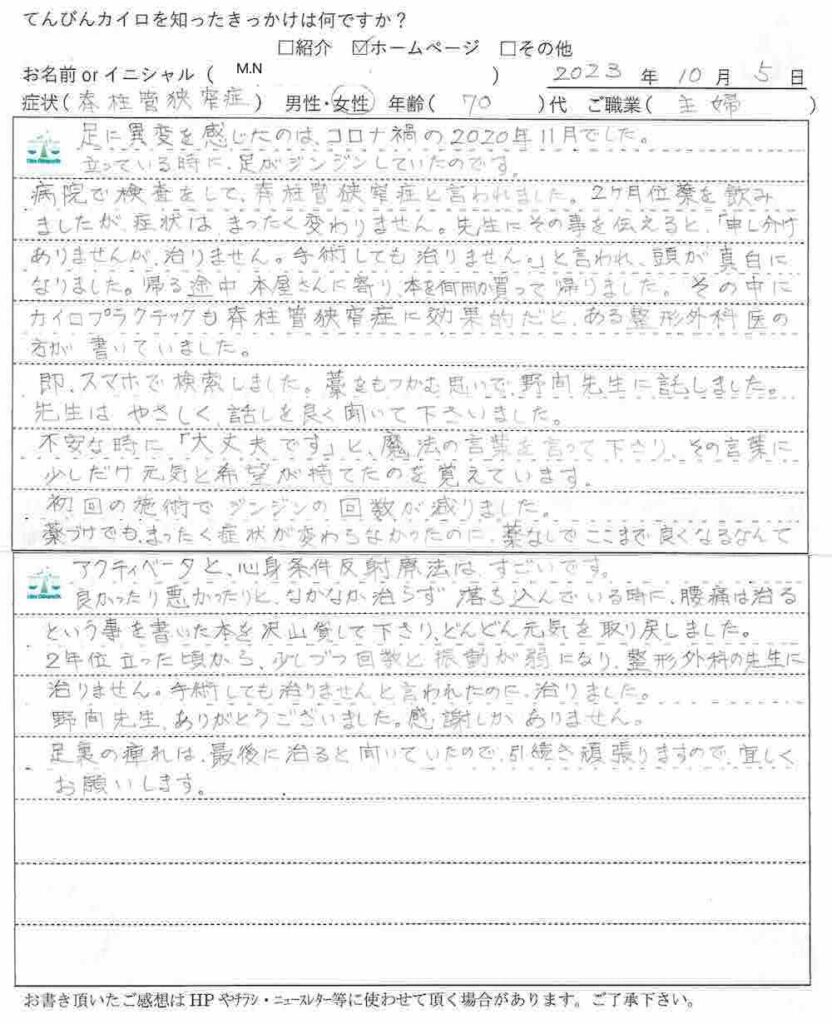 てんびんカイロを知ったきっかけは何ですか？
□紹介 ☑ホームページ □その他
お名前 or イニシャル ( M.N ) 2023 年 10 月 5 日
症状 ( 脊柱管狭窄症 ) 男性・女性 年齢 ( 70 ) 代 ご職業 ( 主婦 )
足に異変を感じたのは、コロナ禍の2020年11月でした。
立っている時に、足がジンジンしていたのです。
病院で検査をして、脊柱管狭窄症と言われました。2ヶ月位薬を飲み
ましたが、症状は まったく変わりません。先生にその事を伝えると、「申し分け
ありませんが、治りません。手術しても治りません。」と言われ、頭が真白に
なりました。帰る途中 本屋さんに寄り、本を何冊か買って帰りました。その中に
カイロプラクテックも脊柱管狭窄症に効果的だと、ある整形外科医の
方が 書いていました。
即、スマホで検索しました。藁をもつかむ思いで、野向先生に託しました。
先生は やさしく、話しを良く聞いて下さいました。
不安な時に「大丈夫です」と、魔法の言葉を言って下さり、その言葉に
少しだけ元気と希望が持てたのを覚えています。
初回の施術でジンジンの回数が減りました。
薬づけでも、まったく症状が変わらなかったのに、薬なしでここまで良くなるなんて
アクティベータと、心身条件反射療法は すごいです。
良かったり悪かったりと、なかなか治らず 落ち込んでいる時に、腰痛は治る
という事を書いた本を沢山貸して下さり、どんどん元気を取り戻しました。
2年位立った頃から、少しづつ回数と振動が弱になり、整形外科の先生に
治りません。手術しても治りませんと言われたのに、治りました。
野向先生、ありがとうございました。感謝しかありません。
足裏の痺れは、最後に治ると聞いていたので、引続き頑張りますので、宜しく
お願いします。
お書き頂いたご感想はHPやﾁﾗｼ・ﾆｭｰｽﾚﾀｰ等に使わせて頂く場合があります。ご了承下さい。